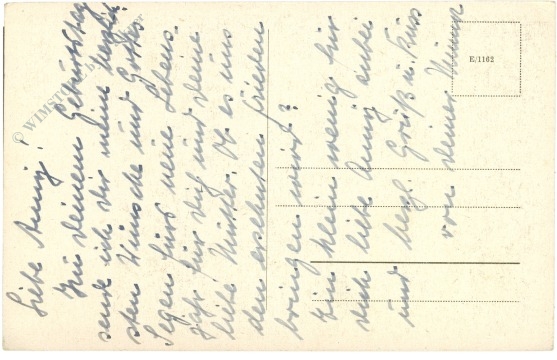 Liebe Anny!
Zu Deinem Geburtstag
sende ich Dir meine herzlich-
sten Wünsche und Gottes
Segen fürs neue Lebens-
jahr für Dich und Deine
liebe Mutter. Ob es uns
den ersehnten Frieden
bringen wird?
Ein klein wenig für
Dich liebe Anny anbei
und herzl. Gruß u. Kuss
von Deiner
E/1162